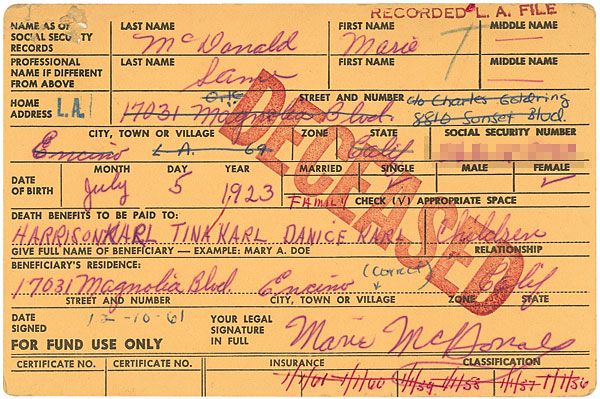 RECORDED L. A. FILE
NAME AS OF SOCIAL SECURITY RECORDS LAST NAME McDonald FIRST NAME Marie MIDDLE NAME
PROFESSIONAL NAME IF DIFFERENT FROM ABOVE LAST NAME Same FIRST NAME MIDDLE NAME
HOME ADDRESS L.A. 17031 Magnolia Blvd. STREET AND NUMBER c/o Charles Goldring
8810 Sunset Blvd.
CITY, TOWN OR VILLAGE ZONE STATE SOCIAL SECURITY NUMBER
Encino L.A. 69 Calif
DATE OF BIRTH MONTH DAY YEAR MARRIED SINGLE MALE FEMALE
July 5 1923 ✓ ✓
FAMILY CHECK (√) APPROPRIATE SPACE
DECEASED
DEATH BENEFITS TO BE PAID TO:
HARRISON KARL TINA KARL DANICE KARL Children
GIVE FULL NAME OF BENEFICIARY — EXAMPLE: MARY A. DOE RELATIONSHIP
BENEFICIARY'S RESIDENCE: (correct)
17031 Magnolia Blvd. Encino Calif
STREET AND NUMBER CITY, TOWN OR VILLAGE ZONE STATE
DATE SIGNED 12-10-61 YOUR LEGAL SIGNATURE IN FULL Marie McDonald
FOR FUND USE ONLY
CERTIFICATE NO. CERTIFICATE NO. INSURANCE CLASSIFICATION
1/1/61 1/1/60 1/1/59 1/1/58 1/1/57 1/1/56